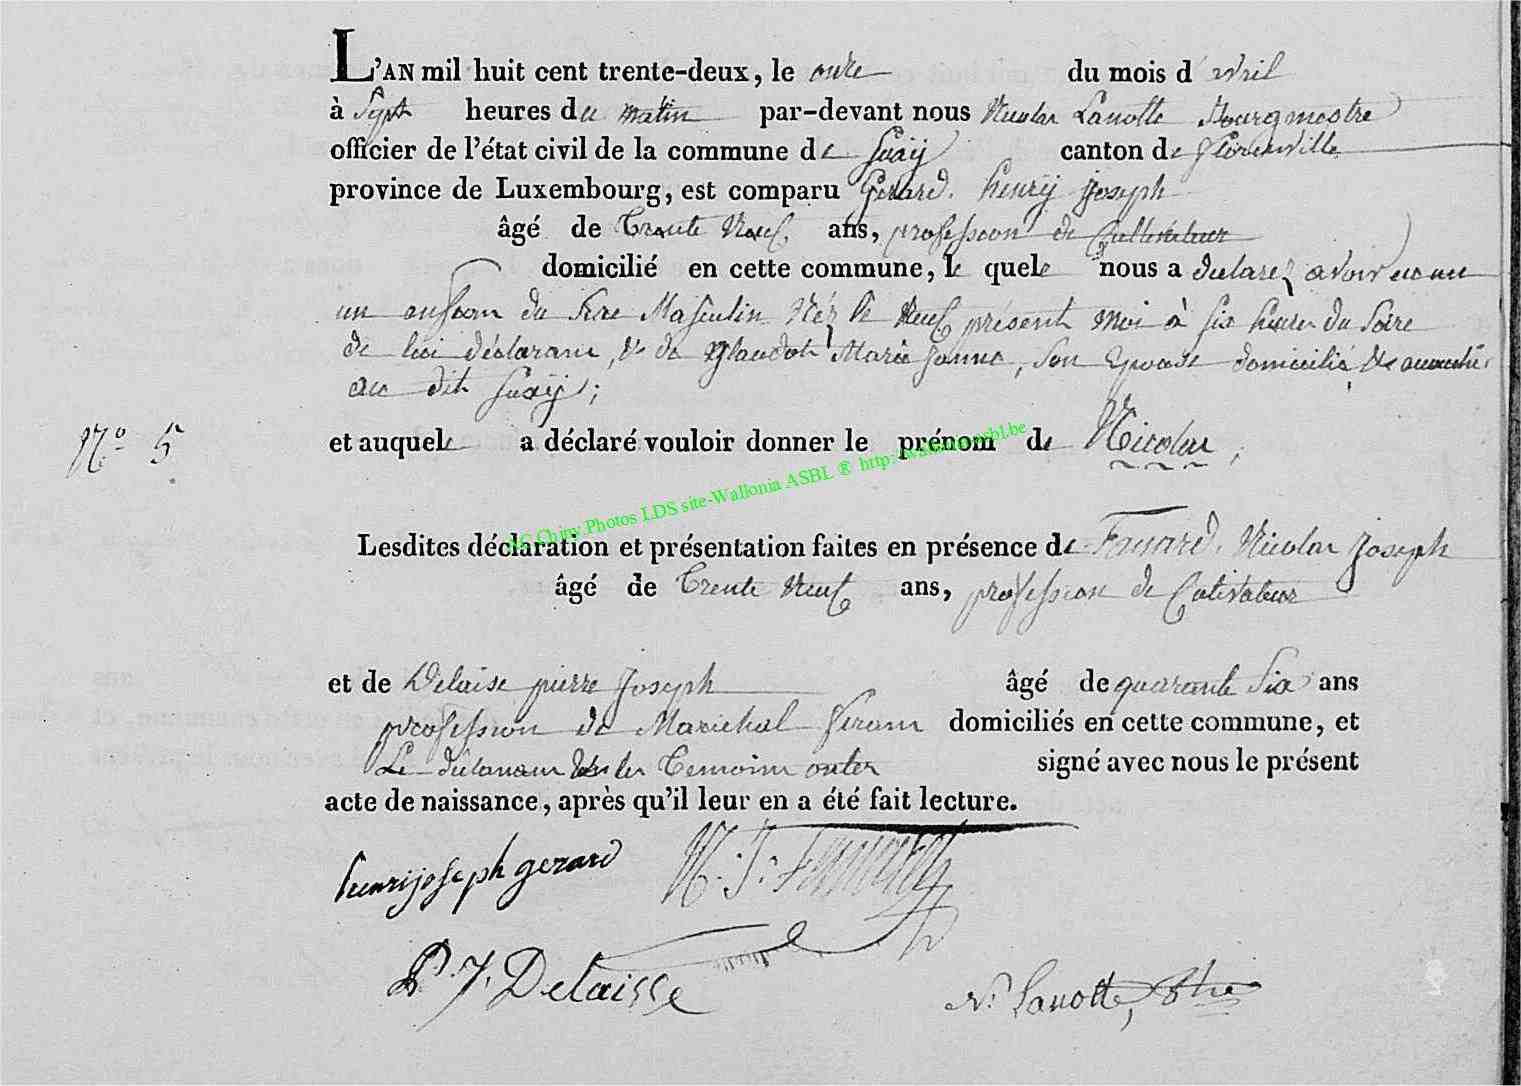 L'AN mil huit cent trente-deux, le onze du mois d'avril
à Sept heures du matin par-devant nous Nicolas Lanotte Bourgmestre
officier de l'état civil de la commune de Suxÿ canton de florenville
province de Luxembourg, est comparu Gerard. henrÿ joseph
âgé de Trente Neuf ans, profession de Cultivateur
domicilié en cette commune, le quele nous a declarez avoir
un enfan du sexe Masculin Néz le Neuf présent moi à six heures du Soire
de lui déclarant, & de Glaudot Marie Janne, son Epouse domicilié &
au dit Suxÿ;
N.º 5
et auquele a déclaré vouloir donner le prénom de Nicolas,
AC Chiny Photos LDS site-Wallonia ASBL ® asbl.be
Lesdites déclaration et présentation faites en présence de Fanard. Nicolas joseph
âgé de Trente Neuf ans, profession de Cultivateur
et de Delaise pierre joseph âgé de quarante Six ans
profession de Marichal feran domiciliés en cette commune, et
Le déclarant les Temoins signé avec nous le présent
acte de naissance, après qu'il leur en a été fait lecture.
henrijoseph gerard N. J. Fanard
P. J. Delaisse
N. Lanotte,